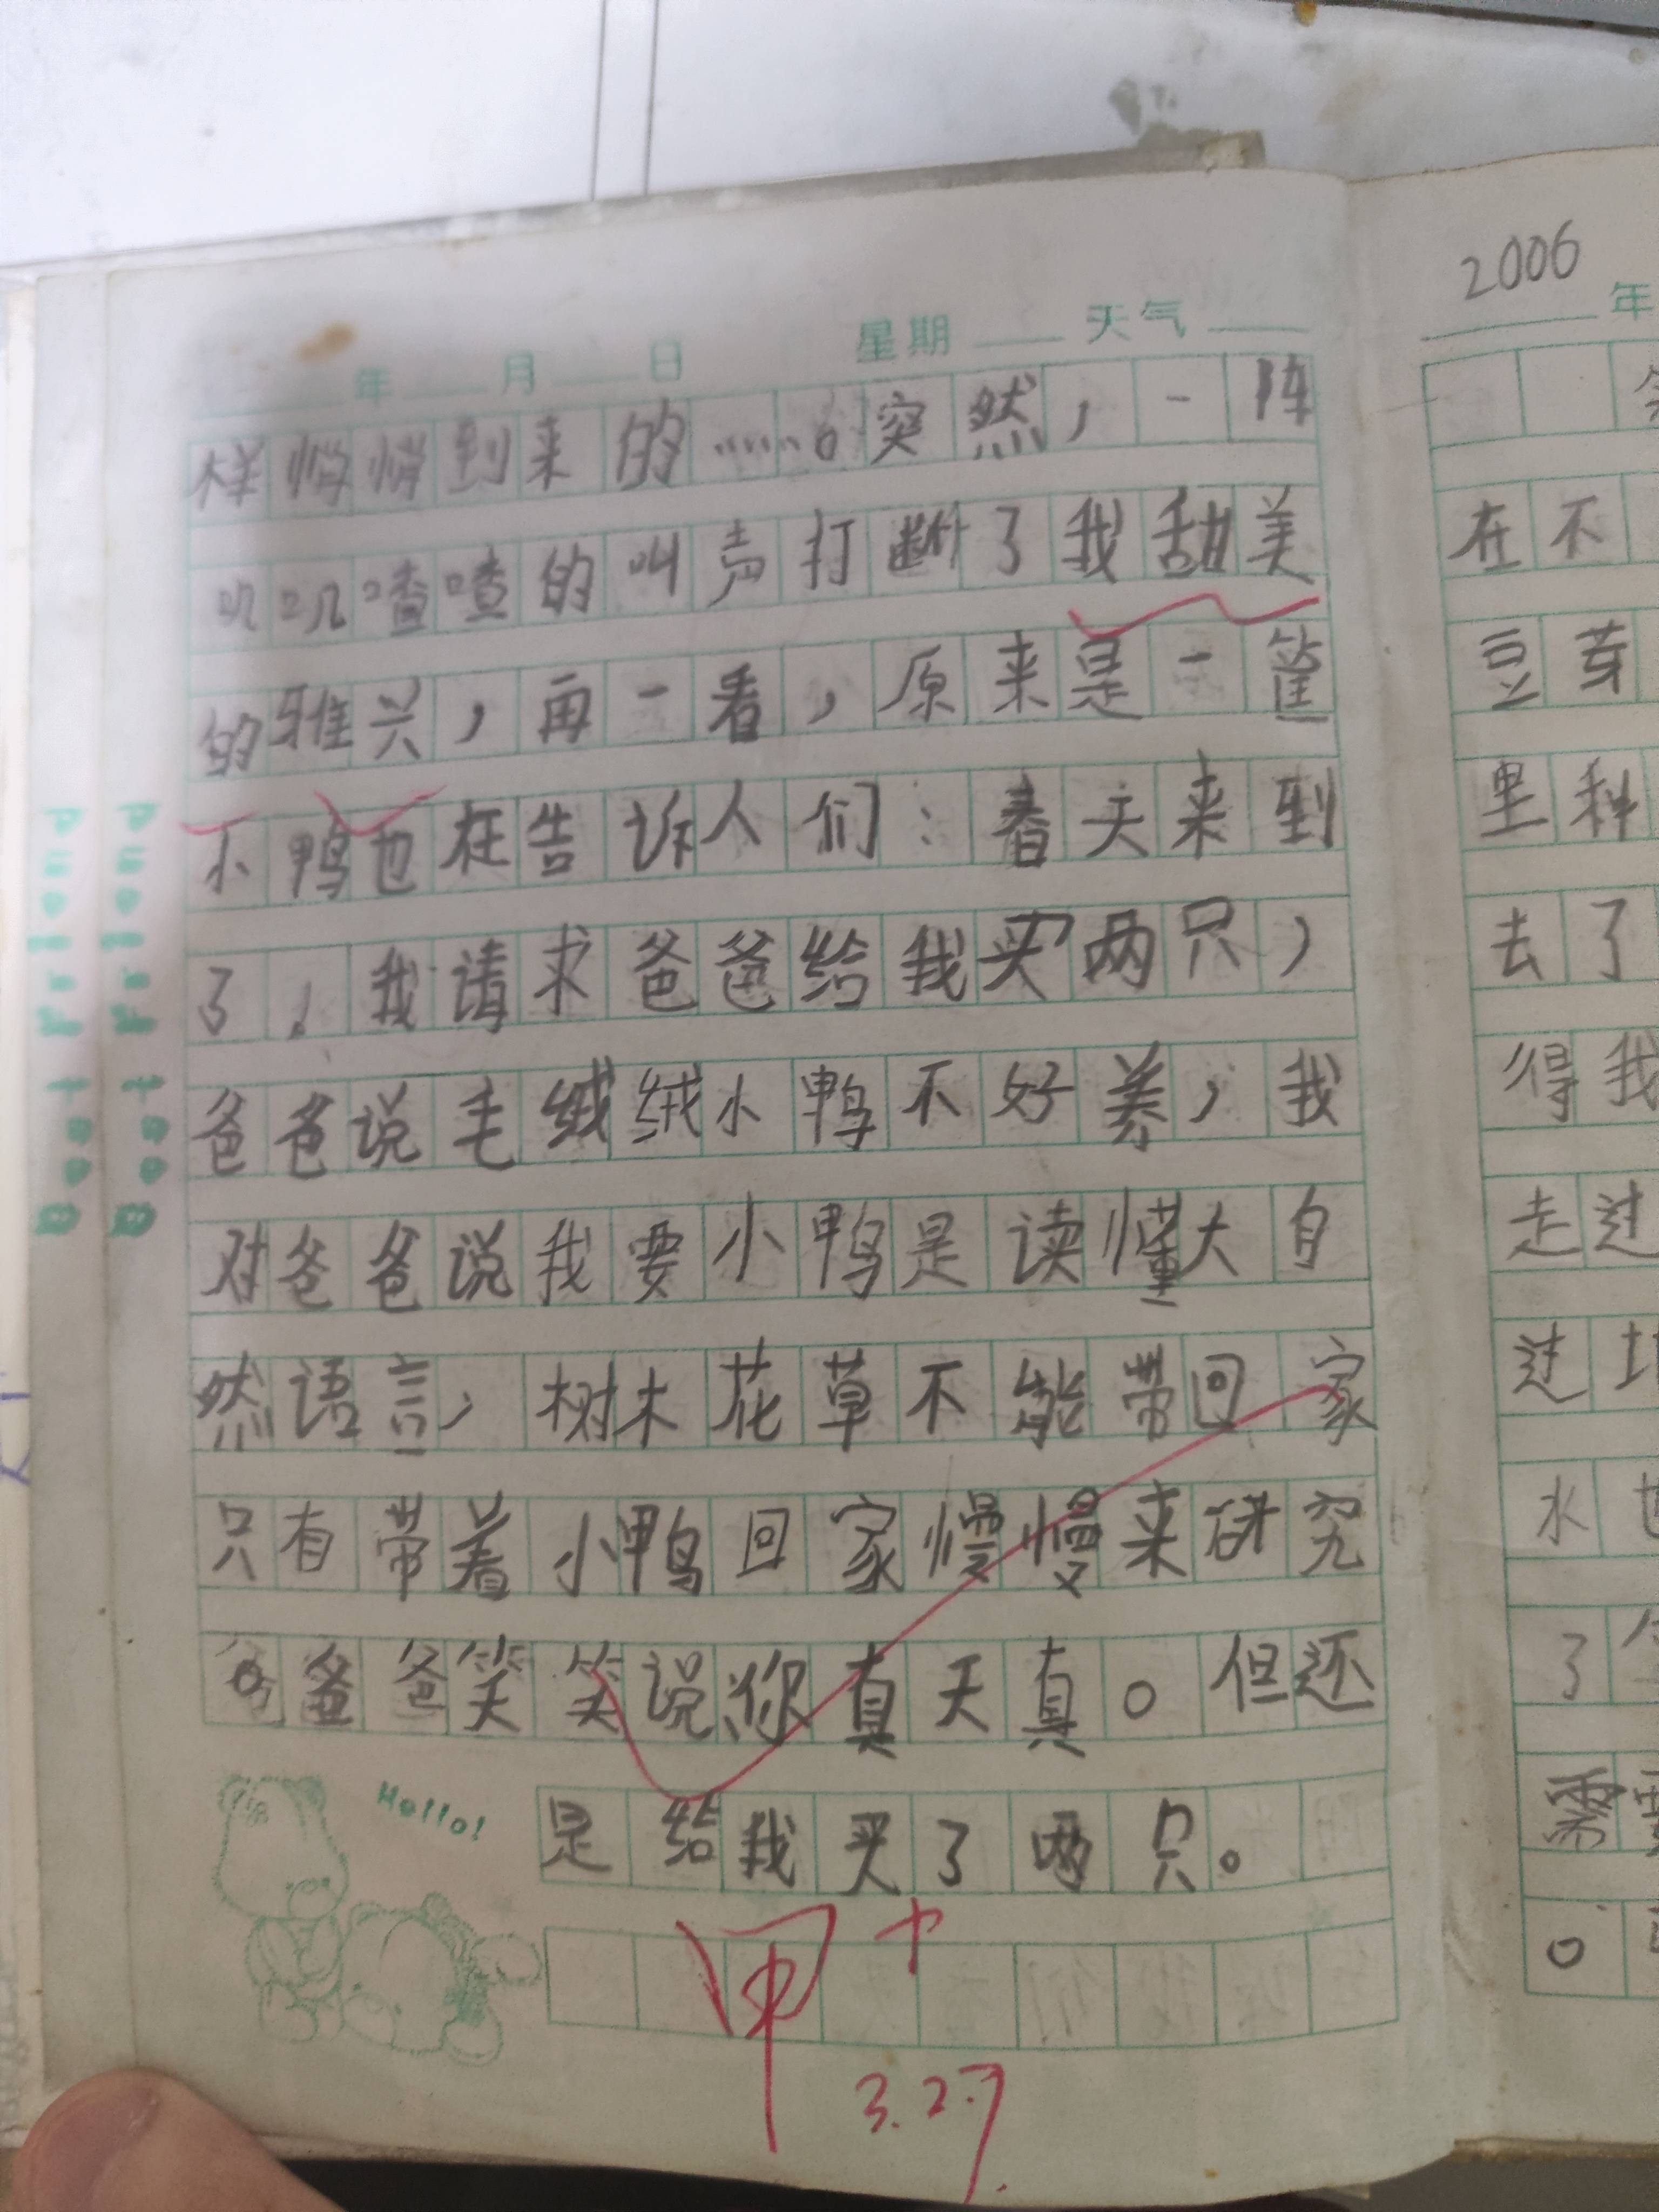 年 月 日 星期 天气
样悄悄到来的……。突然,一阵
叽叽喳喳的叫声打断了我甜美
的雅兴,再一看,原来是一筐
小鸭也在告诉人们:春天来到
了,我请求爸爸给我买两只,
爸爸说毛绒绒小鸭不好养,我
对爸爸说我要小鸭是读懂大自
然语言,树木花草不能带回家
只有带着小鸭回家慢慢来研究
。爸爸笑笑说你真天真。但还
是给我买了两只。
Hello!
甲+
3.27
Best Friend
Best Friend
2006
年
在不
豆芽
里种
去了
得我
走过
进
水也
了
需要
。